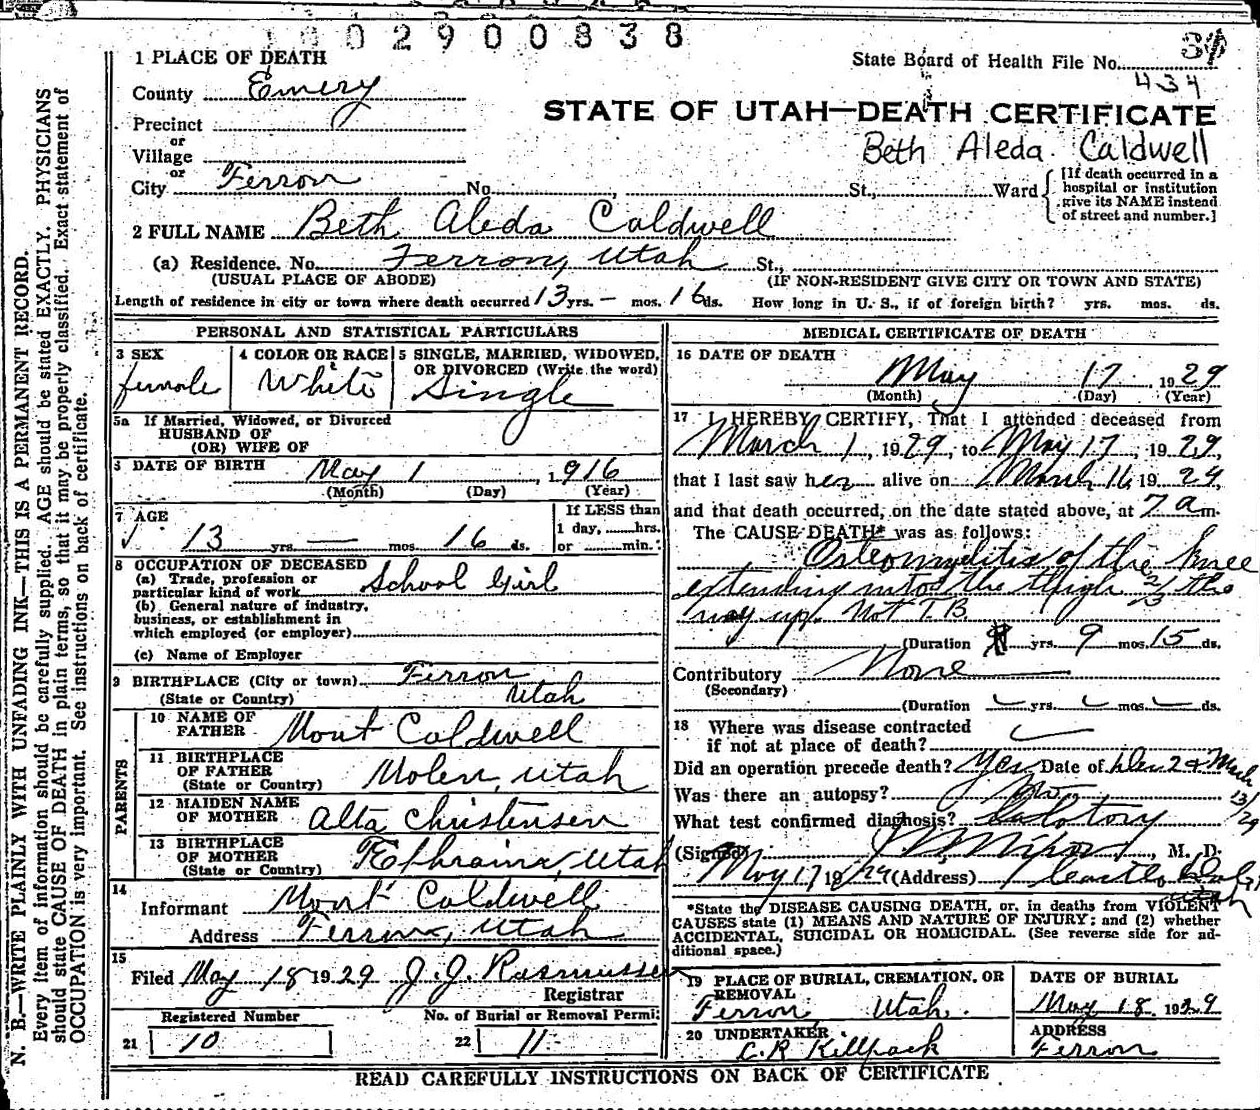 0 2 9 0 0 8 3 8
1 PLACE OF DEATH
State Board of Health File No.
434
County Emery
STATE OF UTAH—DEATH CERTIFICATE
Precinct
or
Village
Beth Aleda Caldwell
or
City Ferron No. St., Ward
[If death occurred in a
hospital or institution
give its NAME instead
of street and number.]
2 FULL NAME Beth Aleda Caldwell
(a) Residence. No. Ferron, Utah St.,
(USUAL PLACE OF ABODE) (IF NON-RESIDENT GIVE CITY OR TOWN AND STATE)
Length of residence in city or town where death occurred 13 yrs. — mos. 16 ds. How long in U. S., if of foreign birth? yrs. mos. ds.
PERSONAL AND STATISTICAL PARTICULARS
3 SEX
female
4 COLOR OR RACE
White
5 SINGLE, MARRIED, WIDOWED,
OR DIVORCED (Write the word)
Single
5a If Married, Widowed, or Divorced
HUSBAND OF
(OR) WIFE OF
6 DATE OF BIRTH May 1, 1916
(Month) (Day) (Year)
7 AGE
13 yrs. — mos. 16 ds.
If LESS than
1 day, hrs.
or min.
8 OCCUPATION OF DECEASED
(a) Trade, profession or
particular kind of work School Girl
(b) General nature of industry,
business, or establishment in
which employed (or employer)
(c) Name of Employer
9 BIRTHPLACE (City or town) Ferron
(State or Country) Utah
PARENTS
10 NAME OF
FATHER Mont Caldwell
11 BIRTHPLACE
OF FATHER
(State or Country) Molen, Utah
12 MAIDEN NAME
OF MOTHER Alta Christensen
13 BIRTHPLACE
OF MOTHER
(State or Country) Ephraim, Utah
14
Informant Mont Caldwell
Address Ferron, Utah
15
Filed May 18 1929 J. J. Rasmussen
Registrar
Registered Number No. of Burial or Removal Permit
21 10 22 11
MEDICAL CERTIFICATE OF DEATH
16 DATE OF DEATH
May 17, 1929
(Month) (Day) (Year)
17 I HEREBY CERTIFY, That I attended deceased from
March 1, 1929, to May 17, 1929,
that I last saw her alive on March 16 19 29,
and that death occurred, on the date stated above, at 7 a m.
The CAUSE DEATH* was as follows:
Osteomyelitis of the knee
extending into the thigh 2/3 the
way up. Not T.B.
(Duration yrs. 9 mos. 15 ds.
Contributory None
(Secondary)
(Duration yrs. mos. ds.
18 Where was disease contracted
if not at place of death?
Did an operation precede death? Yes Date of Dec 2 & March
13/29
Was there an autopsy? No
What test confirmed diagnosis?
(Signed) M. D.
May 17 1929 (Address) Castle Dale
Utah
*State the DISEASE CAUSING DEATH, or, in deaths from VIOLENT
CAUSES state (1) MEANS AND NATURE OF INJURY; and (2) whether
ACCIDENTAL, SUICIDAL OR HOMICIDAL. (See reverse side for ad-
ditional space.)
19 PLACE OF BURIAL, CREMATION, OR
REMOVAL
Ferron Utah.
DATE OF BURIAL
May 18, 1929
20 UNDERTAKER
C. R. Killpack
ADDRESS
Ferron
READ CAREFULLY INSTRUCTIONS ON BACK OF CERTIFICATE
N. B.—WRITE PLAINLY WITH UNFADING INK—THIS IS A PERMANENT RECORD.
Every item of information should be carefully supplied. AGE should be stated EXACTLY. PHYSICIANS
should state CAUSE OF DEATH in plain terms, so that it may be properly classified. Exact statement of
OCCUPATION is very important. See instructions on back of certificate.